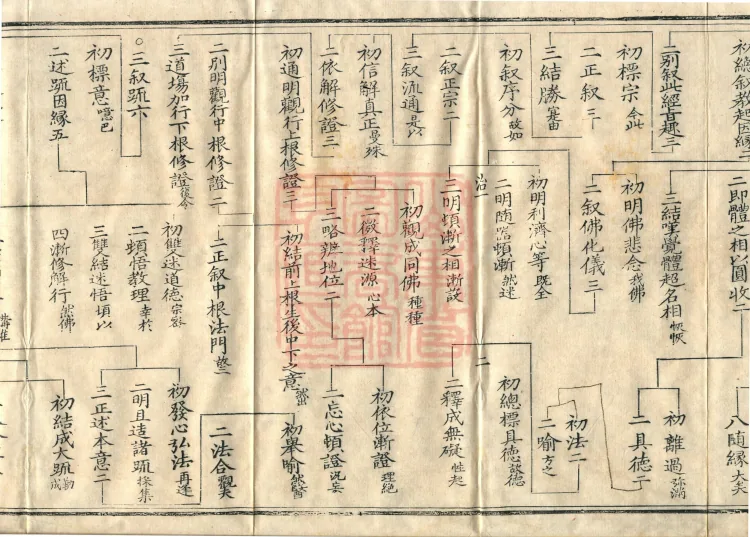 初總叙教起因緣二
二即體之相以圓收二
八隨緣大夫
二別叙此經旨趣三
三結嘆覺體超名相
初離過
二具德二
初標宗令此
初明佛悲念我佛
初法二
二喻
二正叙三
二叙佛化儀三
三結勝
初叙序分故如
初明利濟心等既全
初總標具德
二叙正宗二
二明随器頓漸然迷
二釋成無礙性起
三叙流通是以
三明頓漸之相漸設
初信解真正曼殊
初觀成同佛種種
初依位漸證理絶
二依解修證三
二徵釋迷源心本
二忘心頓證況妄
三略辨地位二
初通明觀行上根修證三
初結前上根生後中下之意
初舉喻
二別明觀行中根修證二
二正叙中根法門
二法合
三道場加行下根修證後今
初雙述迷道德宗
初發心弘法再逢
三叙䟽六
二頓悟教理幸於
二明且造諸䟽採集
初標意噫巴
三雙結迷悟頓以
三正述本意二
二述䟽因緣五
四漸修解行然佛
初結成大䟽